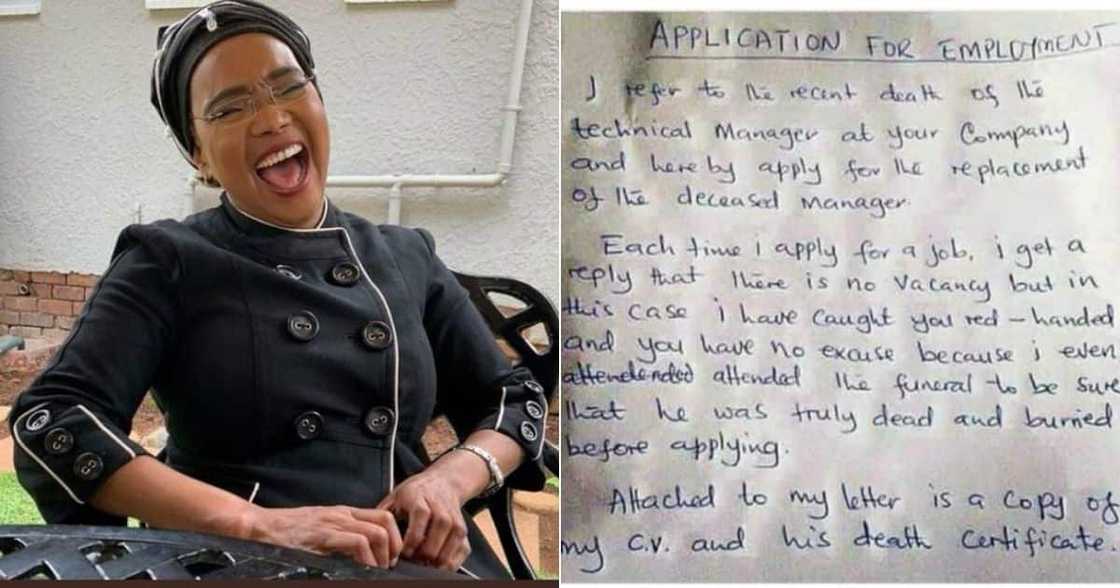 APPLICATION FOR EMPLOYMENT
I refer to the recent death of the
technical Manager at your Company
and hereby apply for the replacement
of the deceased Manager.
Each time i apply for a job, i get a
reply that there is no vacancy but in
this case i have caught you red-handed
and you have no excuse because i even
attended the funeral to be sure
that he was truly dead and burried
before applying.
Attached to my letter is a copy of
my c.v. and his death certificate.